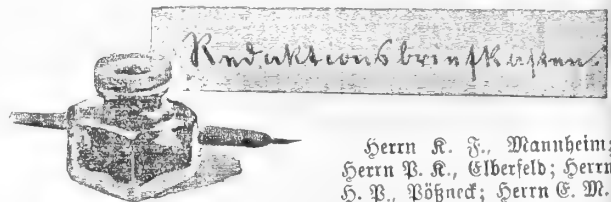 Redaktionsbriefkasten.
Herrn K. F., Mannheim;
Herrn P. K., Elberfeld; Herrn
H. P., Pößneck; Herrn E. M.